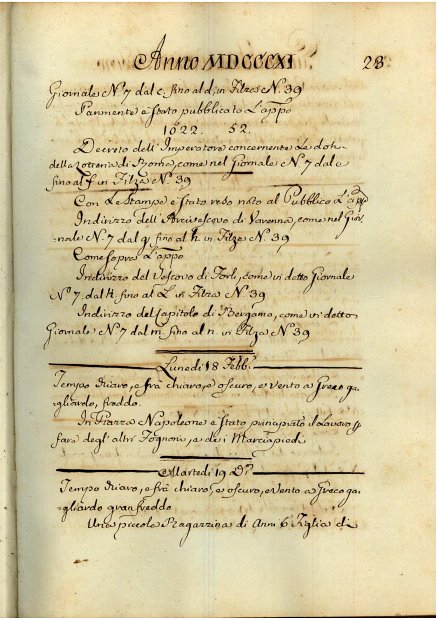 Anno MDCCCXI 28
Giornale N. 7 dal c. fino al d. in Filza N. 39
Parimente è stato pubblicato L'appo
1622. 52.
Decreto dell'Imperatore concernente Le doti
della Lotteria di Roma, come nel Giornale N. 7 dal e
fino al f in Filza N. 39
Con Le Stampe è stato reso noto al Pubblico L'appo
Indirizzo dell'Arcivescovo di Ravenna, come nel Gior-
nale N. 7 dal g. fino al h. in Filza N. 39
Come sopra L'appo
Indirizzo del Vescovo di Forlì, come in detto Giornale
N. 7. dal h. fino al L. in Filza N. 39
Indirizzo del Capitolo di Bergamo, come in detto
Giornale N. 7 dal m. fino al n. in Filza N. 39
Lunedì 18 Febb.
Tempo Chiaro, e frà chiaro, e oscuro, e vento a Greco ga-
gliardo, freddo.
In Piazza Napoleone è stato principiato il Lavoro p
fare degl'altri Fognoni, e dei Marciapiedi
Martedì 19 D.
Tempo Chiaro, e frà chiaro, e oscuro, e vento a Greco ga-
gliardo gran freddo
Una piccola Ragazzina di Anni 6 Figlia di